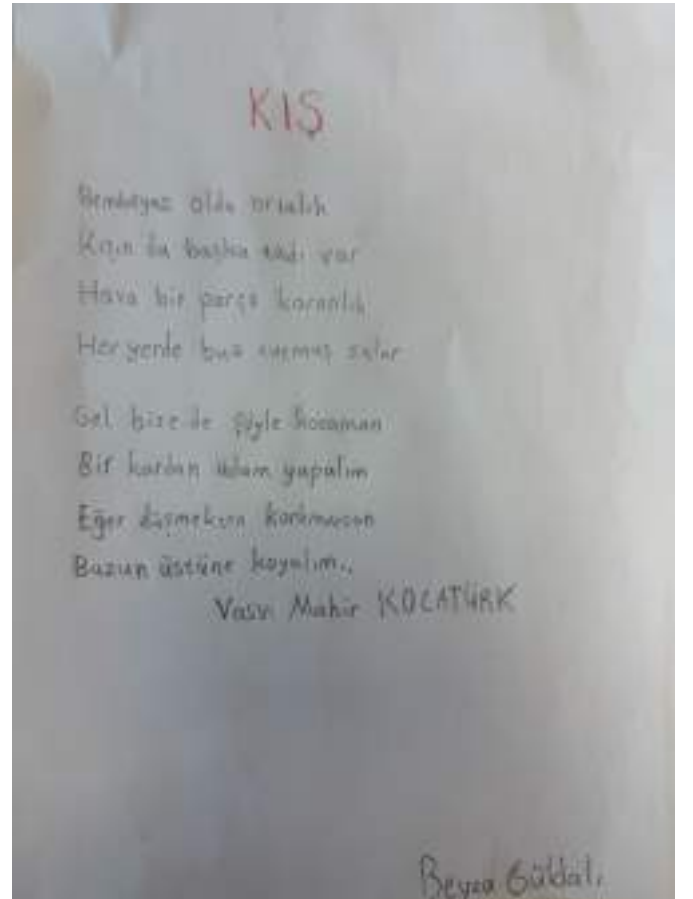 KIŞ
Bembeyaz oldu ortalık
Kışın da başka tadı var
Hava bir parça karanlık
Her yerde buz tutmuş sular
Gel bize de şöyle kocaman
Bir kardan adam yapalım
Eğer düşmekten korkmazsan
Buzun üstüne kayalım..
Vasfi Mahir KOCATÜRK
Beyza Güldalı